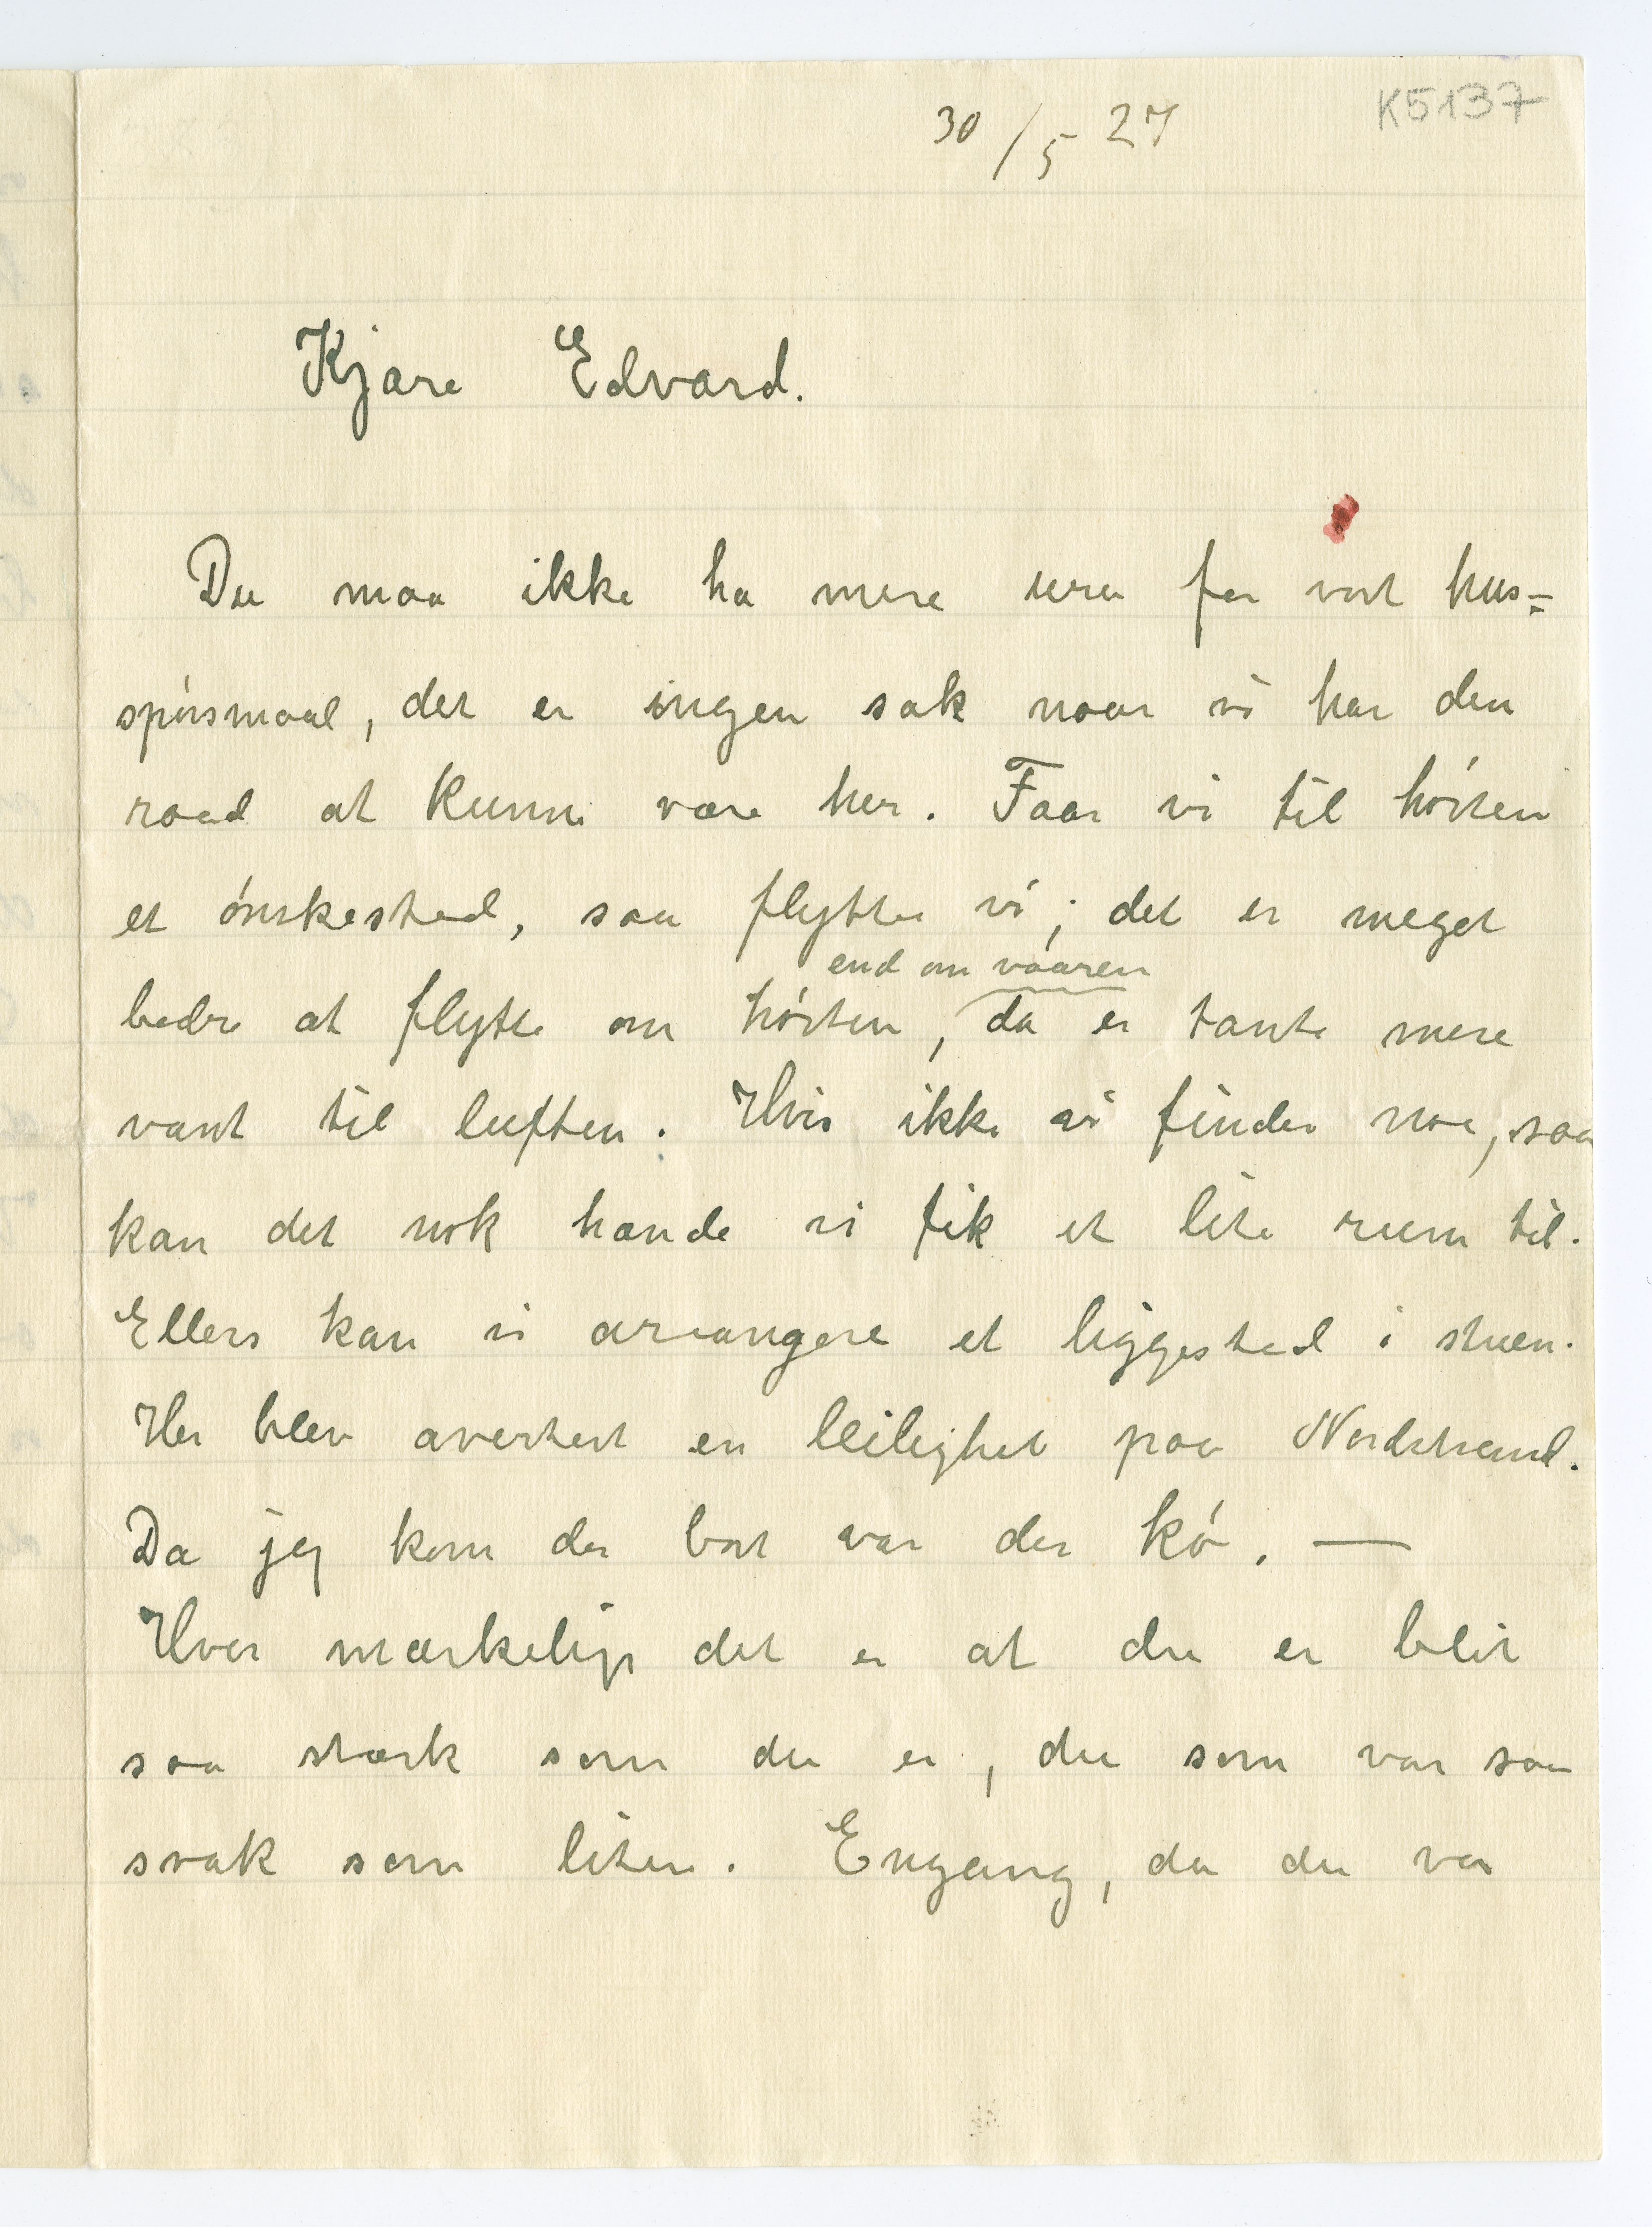 K5137
30/5 27
Kjære Edvard.
Du maa ikke ha mere uro for vort hus=
spörsmaal, det er ingen sak naar vi har den
raad at kunne være her. Faar vi til hösten
et önskested, saa flytter vi; det er meget
end om vaaren
bedre at flytte om hösten, da er tante mere
vant til luften. Hvis ikke vi finder noe, saa
kan det nok hænde vi fik et lite rum til.
Ellers kan vi arrangere et liggested i stuen.
Her blev avertert en leilighet paa Nordstrand.
Da jeg kom der bort var der kö. —
Hvor mærkelig det er at du er blit
saa stærk som du er, du som var saa
svak som liten. Engang, da du var